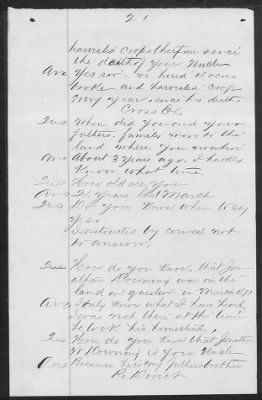 21
harvested crops therefrom since
the death of your Uncle
Ans Yes sir. hired acres
broke and harvested crop
every year since his death.
Cross Ex
Ques When did you and your
fathers family move to the
land where you
Ans About 3 years ago. I hardly
know what time.
Ques How old are you
Ans 21 years last March
Ques Do you know when to say
yes.
Instructed by council not
to answer.
Ques How do you know that Jonathan
Downing was on the
land in question in March 1871
Ans I only know what I have heard,
I was not there at the time
he took his homestead,
Ques How do you know that Jonathan
W Downing is your Uncle
Ans Because he is my fathers brother
Re Direct